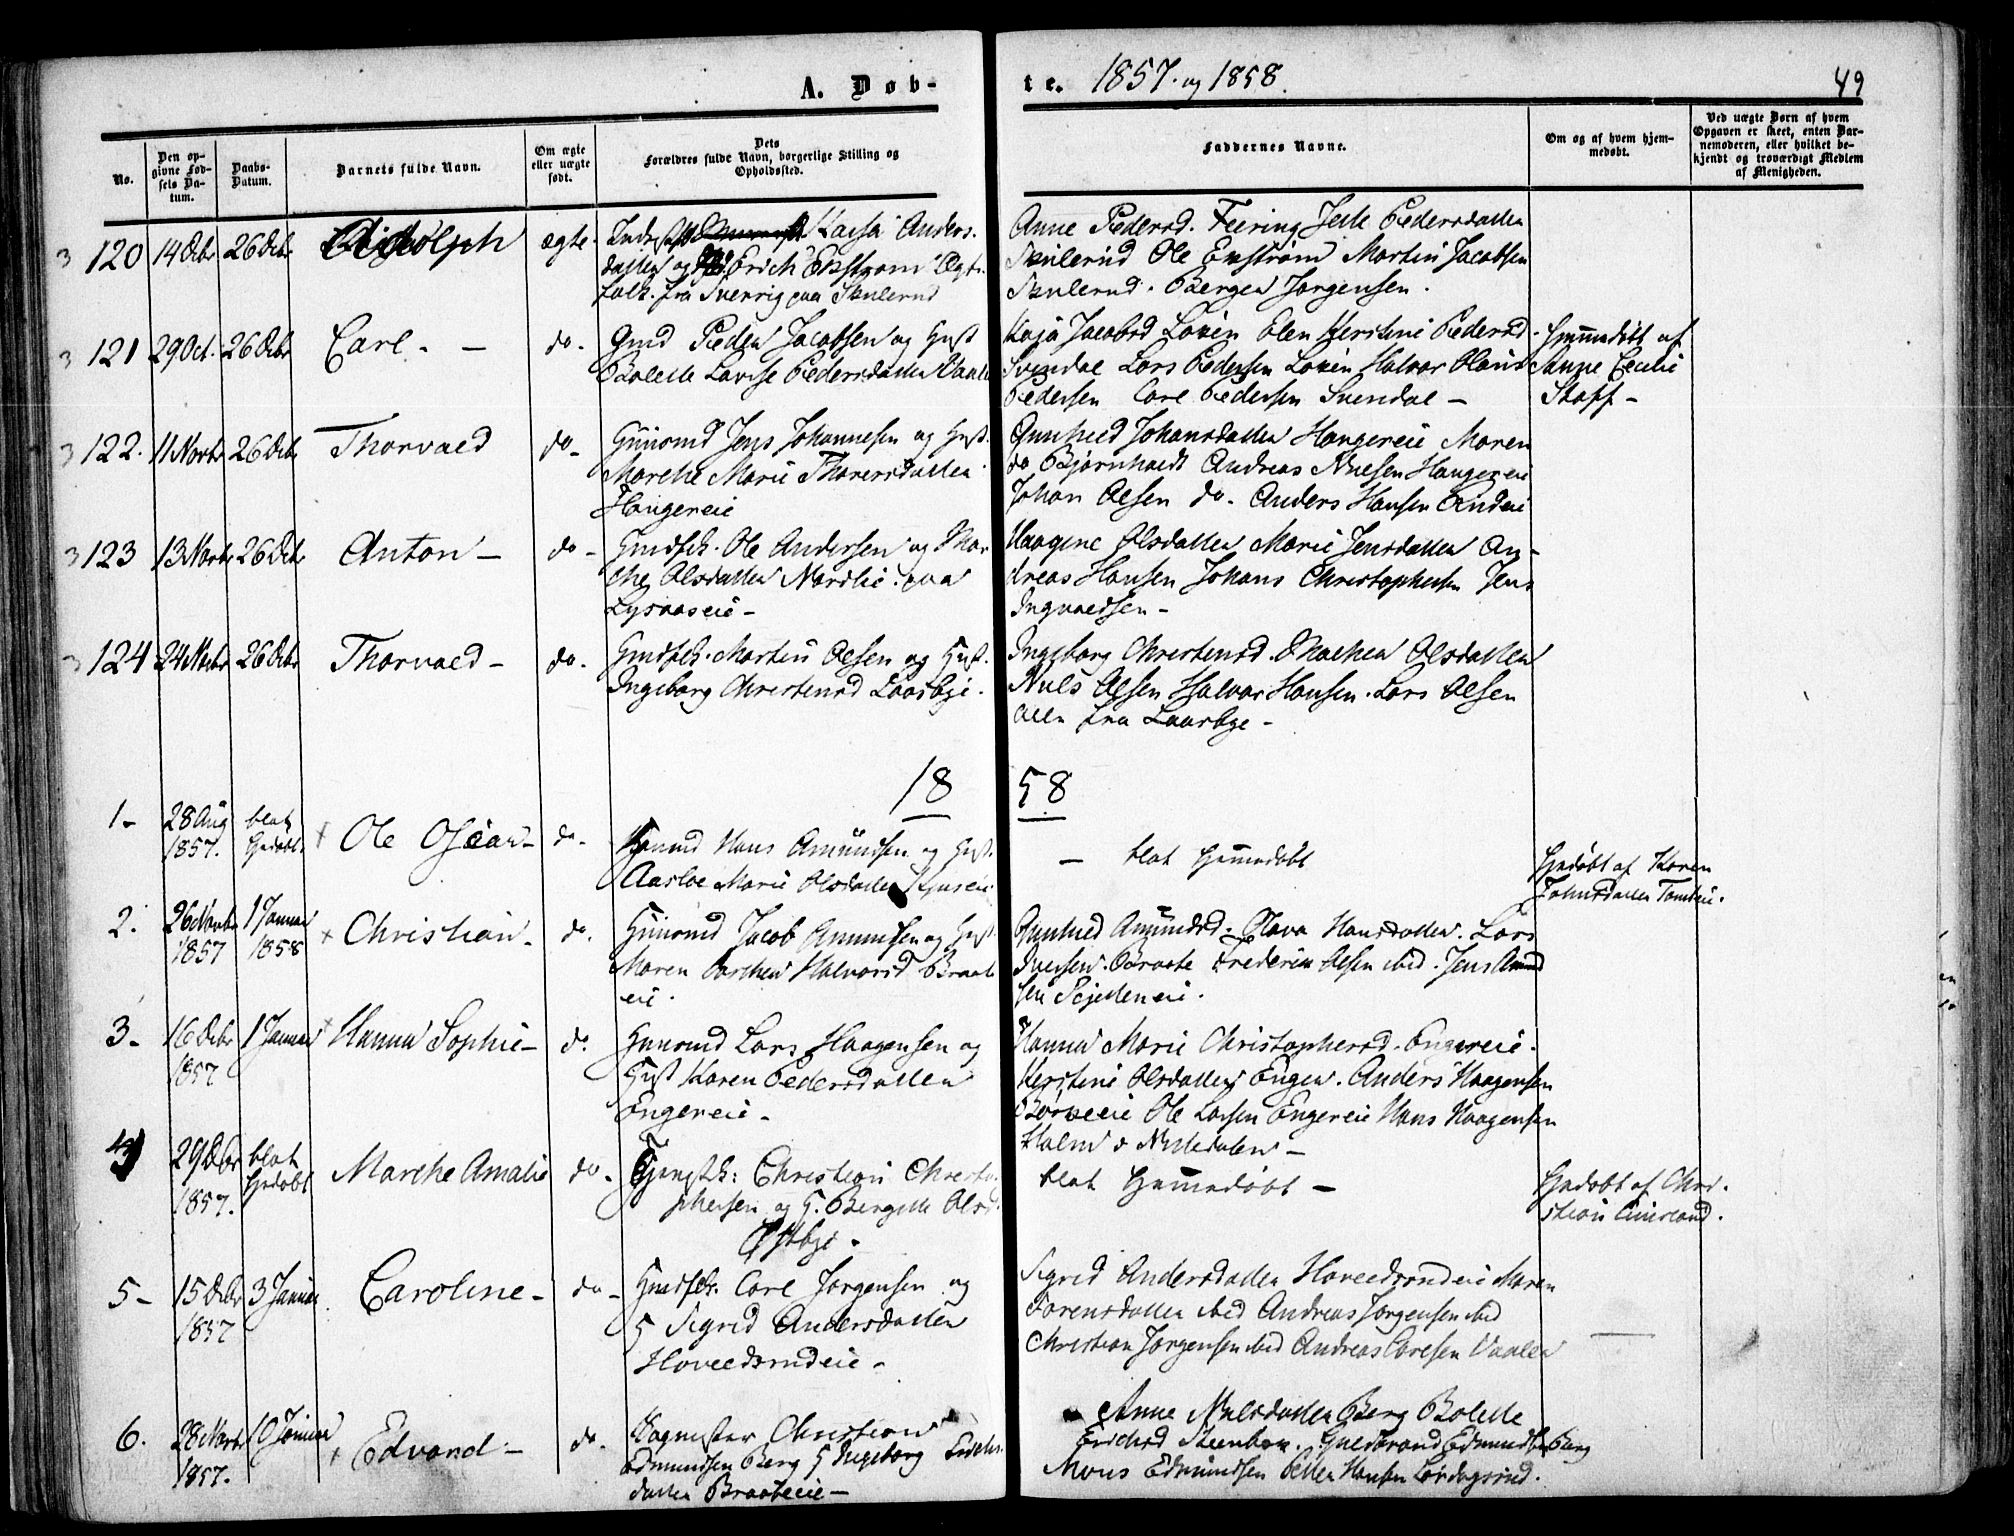 A. Døb-
te. 1857. og 1858.
49
No.
Den op-
givne Fød-
sels Da-
tum.
Daabs-
Datum.
Barnets fulde Navn.
Om ægte
eller uægte
født.
Dets
Forældres fulde Navn, borgerlige Stilling og
Opholdssted.
Faddernes Navne.
Om og af hvem hjem-
medøbt.
Ved uægte Børn af hvem
Opgaven er skeet, enten Bar-
nemoderen, eller hvilket be-
kjendt og troværdigt Medlem
af Menigheden.
3 120 14 Octbr 26 Decbr ægte.
Anders.
datter og Erich Ekstrøm Ægte-
folk. fra Sverrig paa Skulerud
Anne Pedersd. Feering Pedersdatter
Skulerud Ole Ekstrøm Martin Jacobsen
Skulerud. Børger Jørgensen.
3 121 29 Oct. 26 Decbr Carl - - do -
Gmd Peder Jacobsen og Hust
Bolette Lovise Pedersdatter Vaaler
Kaja Jacobsd Løken Elen Kerstine Pedersd
Svendal Lars Pedersen Løken Halvor
Pedersen Carl Pedersen Svendal -
Hjemmedøbt af
Anne Cecilie
Staff -
3 122. 11 Novbr 26 Decbr Thorvald do -
Huusmd Jens Johannesen og Hust.
Marthe Marie Thorersdatter
Haugereie
Gunhild Johansdatter Haugereie Maren
do Bjørnholdt Andreas Nielsen Haugereie
Johan Olsen do. Anders Hansen
3 123 13 Novbr 26 Decbr Anton - do -
Ole Andersen og Mar-
the Olsdatter Nordlie paa
Lysaaseie -
Haagine Olsdatter Marie Jensdatter An-
dreas Hansen Johans Christophersen Jens
Ingvaldsen -
3 124 24 Novbr 26 Decbr Thorvald - do -
Martin Olsen og Hust.
Ingeborg Christensd Laarbye.
Ingeborg Christensd. Mathea Olsdatter
Niels Olsen Halvor Hansen. Lars Olsen
alle fra Laarbye -
18 58
1 - 28 Aug 1857. blot Hjdøbt Ole Oscar - do -
Huusmd Hans Amundsen og Hust.
Marie Olsdatter
- blot Hjemmedøbt
Hjdøbt af Karen
Johnsdatter
2. 26 Novbr 1857 1 Januar 1858 Christian - do.
Huusmd Jacob Amundsen og Hust
Maren Dorthea Halvorsd Braat
eie.
Gunhild Amundsd. Olava Hansdatter. Lars
Iversen. Braate Frederik Olsen ibid. Jens Amund
sen
3 - 16 Decbr 1857 1 Januar Hanna Sophie - do.
Huusmd Lars Haagensen og
Hust Karen Pedersdatter
Engereie -
Hanna Marie Christophersd. Engereie.
Kerstine Olsdatter Engen. Anders Haagensen
Ole Larsen Engereie Hans Haagensen
Holm o Nittedalen -
4 29 Decbr 1857. blot Hjdøbt Marthe Amalie do -
Christian Christo-
phersen og H. Bergitte Olsd.
Østbye.
blot Hjemmedøbt -
Hjdøbt af Chri-
stian
5 - 15 Decbr 1857 3 Januar Caroline - do -
Carl Jørgensen og
H Sigrid Andersdatter
Hovelsrudeie -
Sigrid Andersdatter Hovelsrudeie Maren
Sørensdatter ibid Andreas Jørgensen ibid
Christian Jørgensen ibid Andreas Carlsen Vaaler
6. 28 Novbr 1857. 10 Januar Edvard - do -
Christian
Edmundsen Berg H Ingeborg Erichs
datter Braateeie -
Anne Nielsdatter Berg Bolette
Erichsd Steenbøk. Guldbrand Edmundsen Berg
Mons Edmundsen Petter Hansen Lørdagsrud.